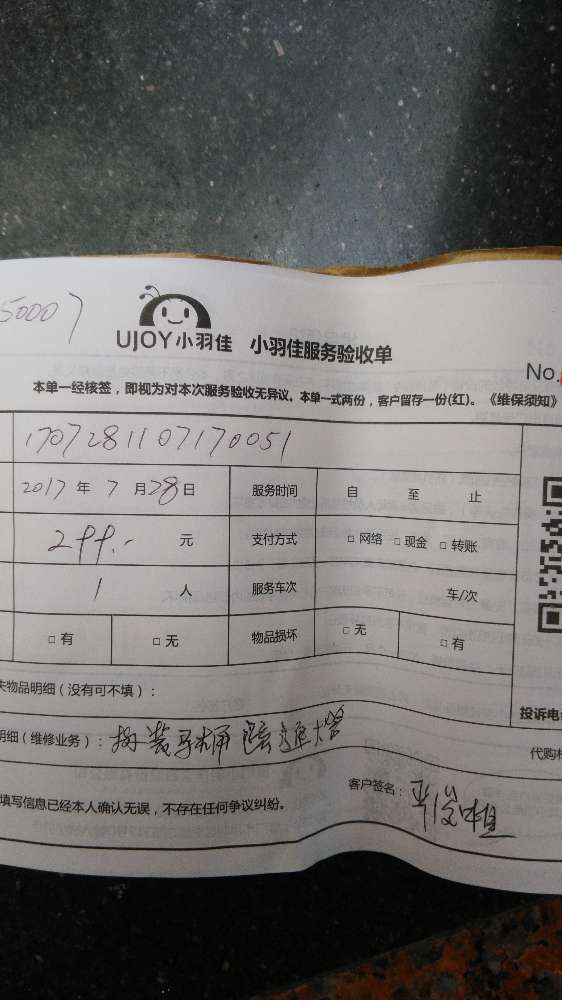 50007
UJOY小羽佳 小羽佳服务验收单
No.
本单一经核签，即视为对本次服务验收无异议。本单一式两份，客户留存一份(红)。《维保须知》
1707281107170051
2017 年 7 月 28 日 服务时间 自 至 止
299.- 元 支付方式 □ 网络 □ 现金 □ 转账
1 人 服务车次 车/次
□ 有 □ 无 物品损坏 □ 无 □ 有
失物品明细（没有可不填）：
投诉电
明细（维修业务）：拆装马桶
代购材
填写信息已经本人确认无误，不存在任何争议纠纷。
客户签名：